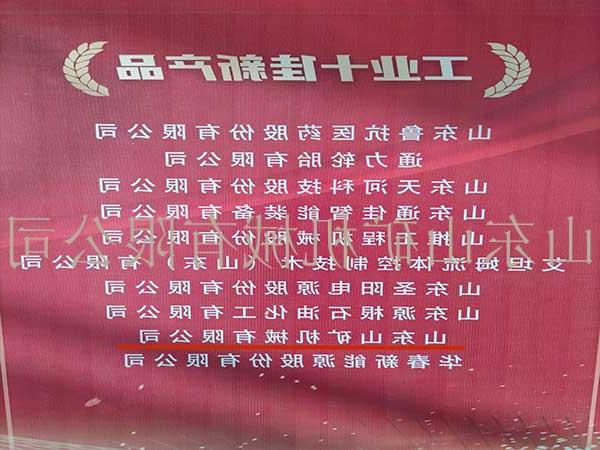 工业十佳新产品
山东鲁抗医药股份有限公司
通力轮胎有限公司
山东天河科技股份有限公司
山东通佳智能装备有限公司
山推工程机械股份有限公司
艾坦姆流体控制技术（山东）有限公司
山东圣阳电源股份有限公司
山东源根石油化工有限公司
山东山矿机械有限公司
华春新能源股份有限公司
山东山矿机械有限公司